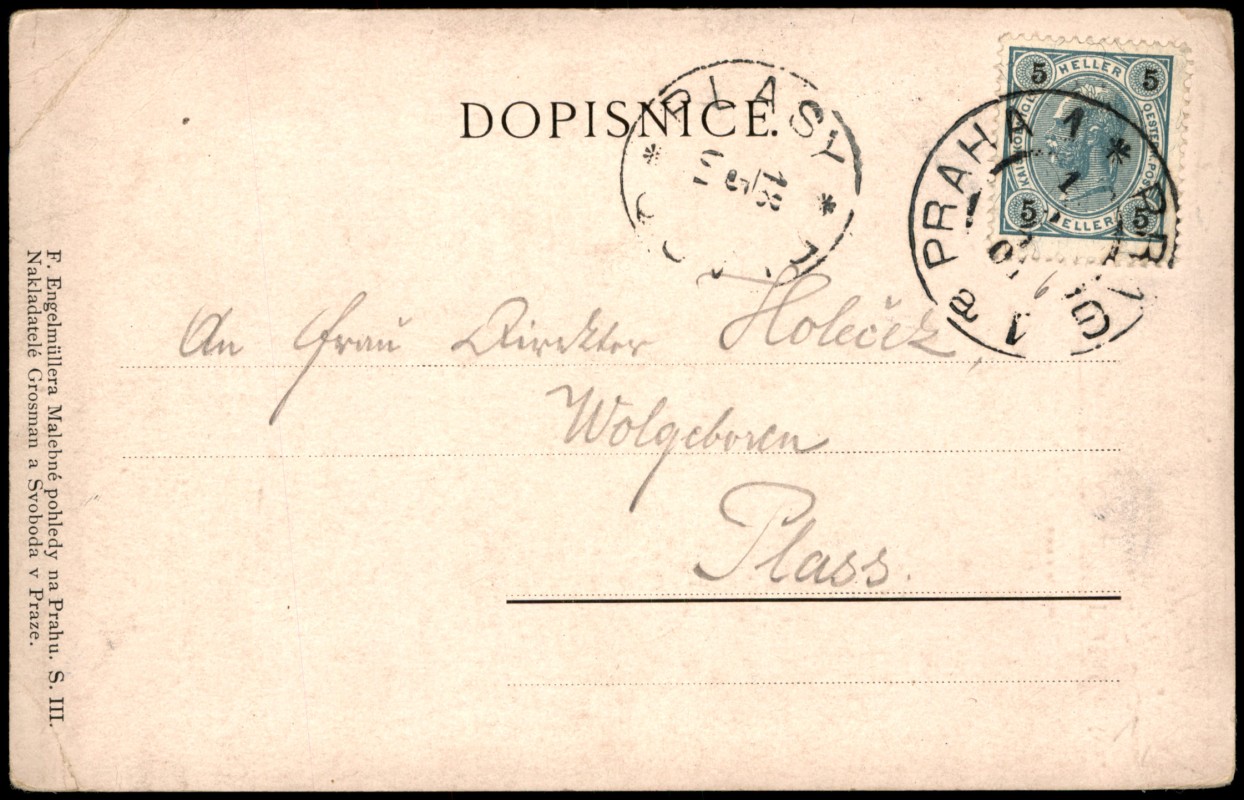 DOPISNICE.
PLASY
18/5
5 HELLER 5
5 HELLER 5
PRAHA 1 * PRAG 1
An Frau Direktor Holeček,
Wolgeboren
Plass.
F. Engelmüllera Malebné pohledy na Prahu. S. III.
Nakladatelé Grosman a Svoboda v Praze.